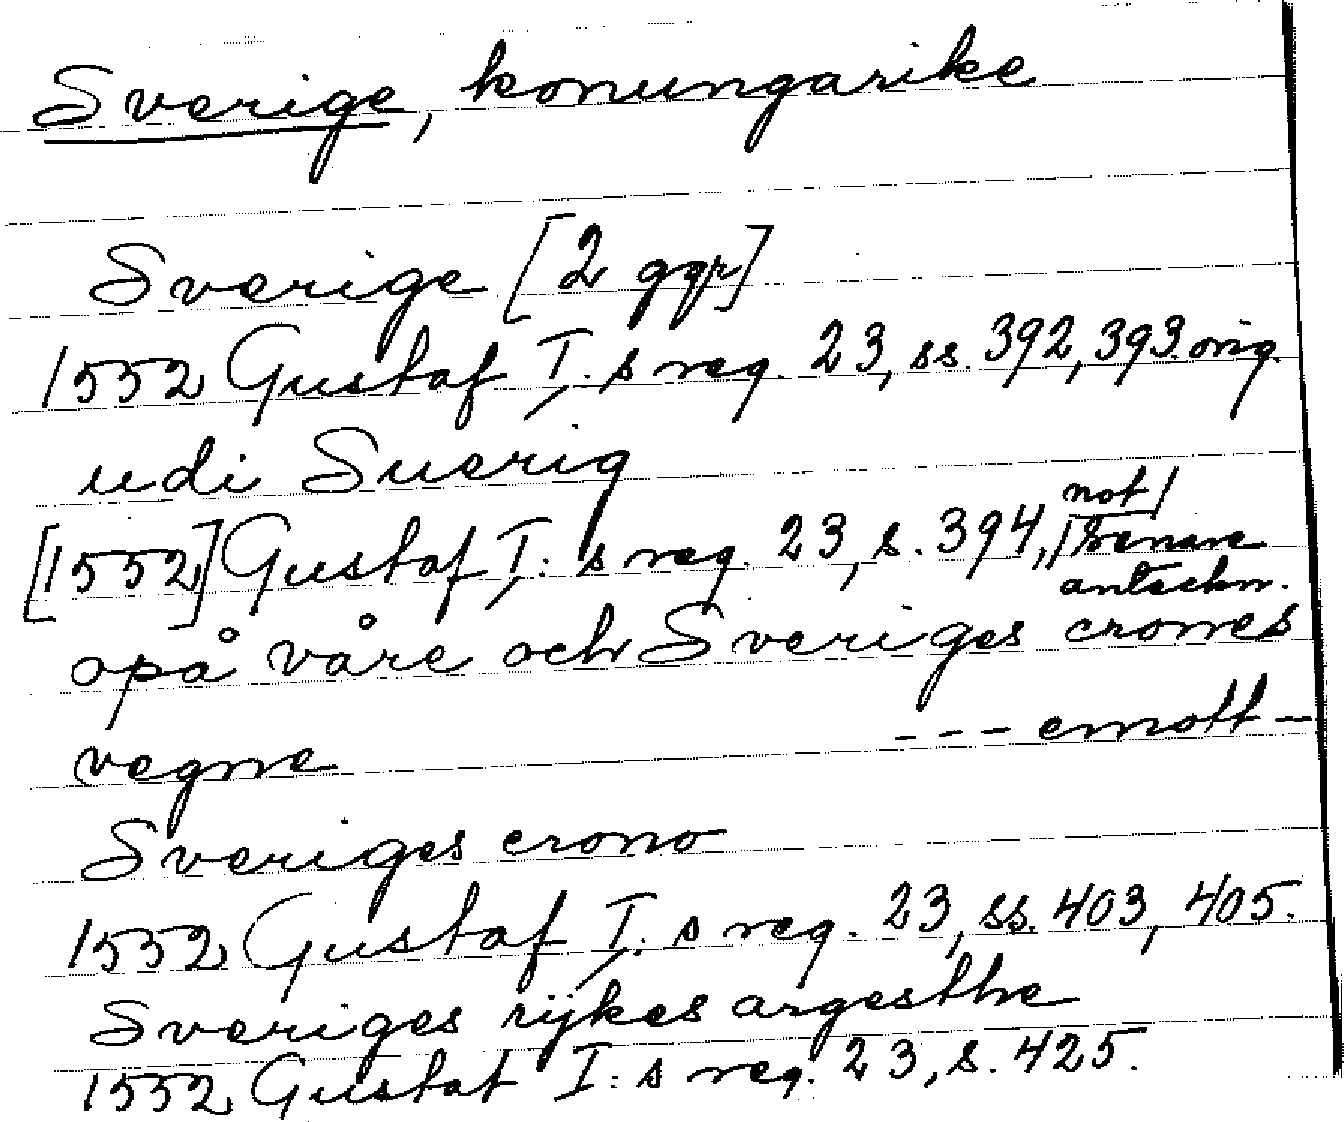 Sverige, konungarike
Sverige [2 ggr]
1552 Gustaf I:s reg. 23, ss. 392, 393. orig.
udi Suerig
[1552] Gustaf I:s reg. 23, s. 394, not/
/senare
anteckn.
opå våre och Sveriges crones
vegne --- emott -
Sveriges crono
1552 Gustaf I:s reg. 23, ss. 403, 405.
Sveriges rijkes argesthe
1552 Gustaf I:s reg. 23, s. 425.